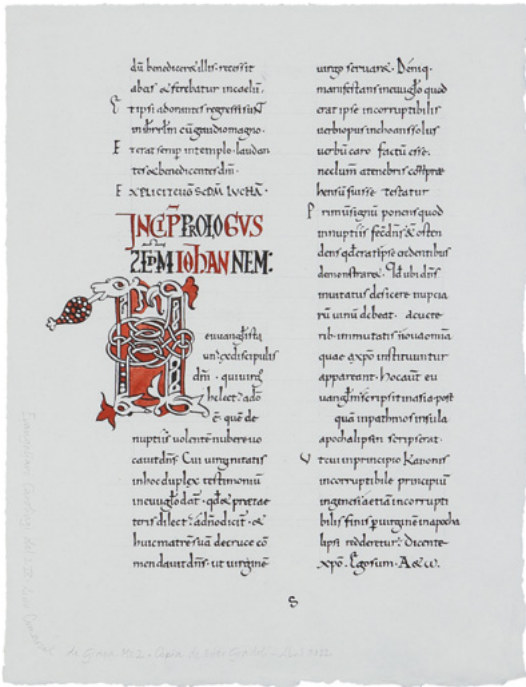 dū benedicer& illis. recessit
ab eis & ferebatur in coelū.
Et ipsi adorantes regressi sunt
in hierlm̄ cū gaudio magno.
Et erat semp̄ in templo. laudan
tes & benedicentes dm̄.
EXPLICIT EUG̅ SCDM̅ LUCHĀ.
INCIP̅ PROLOGVS
SEDM̅ IOHANNEM:
euuangelista
un' ex discipulis
dn̄i. qui uirg̅
& elect' a dō
ē. quē de
nuptiis uolentē nubere uo
cauit dn̄s. Cui uirginitatis
in hoc duplex testimoniū
in euuǵlo dat̄. qd̄ & p̄ cae
teris dilect' a dn̄o dicit̄. &
huic matrē suā de cruce cō
mendauit dn̄s. ut uirginē
uirgo seruar&. Deniq.
manifestans in euuǵlo quod
erat ipse incorruptibilis
uerbi opus inchoans solus
uerbū caro factū esse.
nec lum̄ a tenebris cōp̄
hensū fuisse testatur
Primū signū ponens quod
in nuptiis fec̄ dn̄s & osten
dens qd̄ erat ipse credentibus
demonstrar&. Qd ubi dn̄s
inuitatus deficere nupcia
rū uinū debeat. ac uete
rib. immutatis noua omia
quae a xp̄o instituuntur
appareant. Hoc aut̄ eu
uangl̄m scripsit in asia post
quā in pathmos insula
apochalipsin scripserat.
Ut cui in principio Kanonis
incorruptibile principiū
in genesi & etiā incorrupti
bilis finis p̄ uirginē in apocha
lipsi redderetur. dicente
xp̄o. Ego sum. A & ω.
S